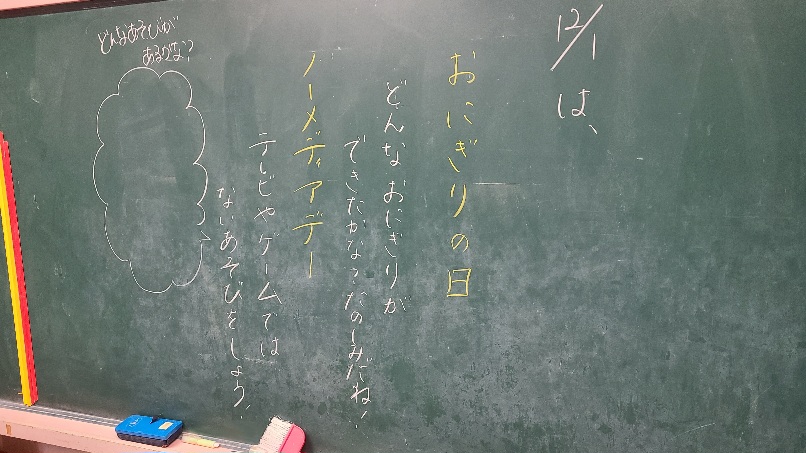 12/1は、
おにぎりの日
どんなおにぎりが
できたかな?たのしみだね!
ノーメディアデー
テレビやゲームでは
ないあそびをしよう!
どんなあそびが
あるかな?